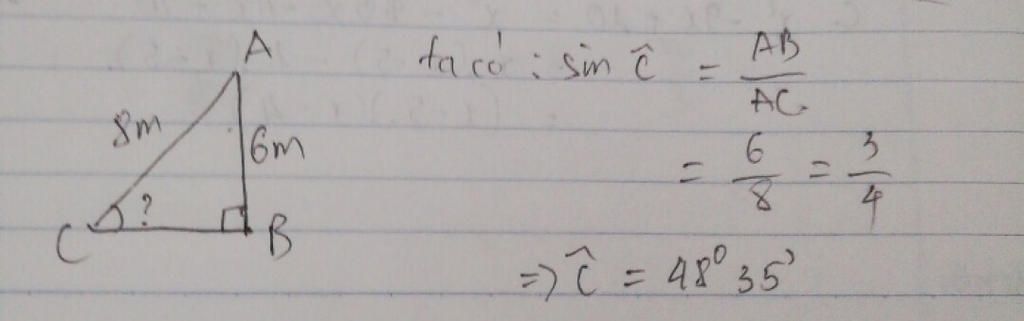 A
8m
6m
C ?
B
ta có : sin Ĉ = AB/AC
= 6/8 = 3/4
=> Ĉ = 48° 35'